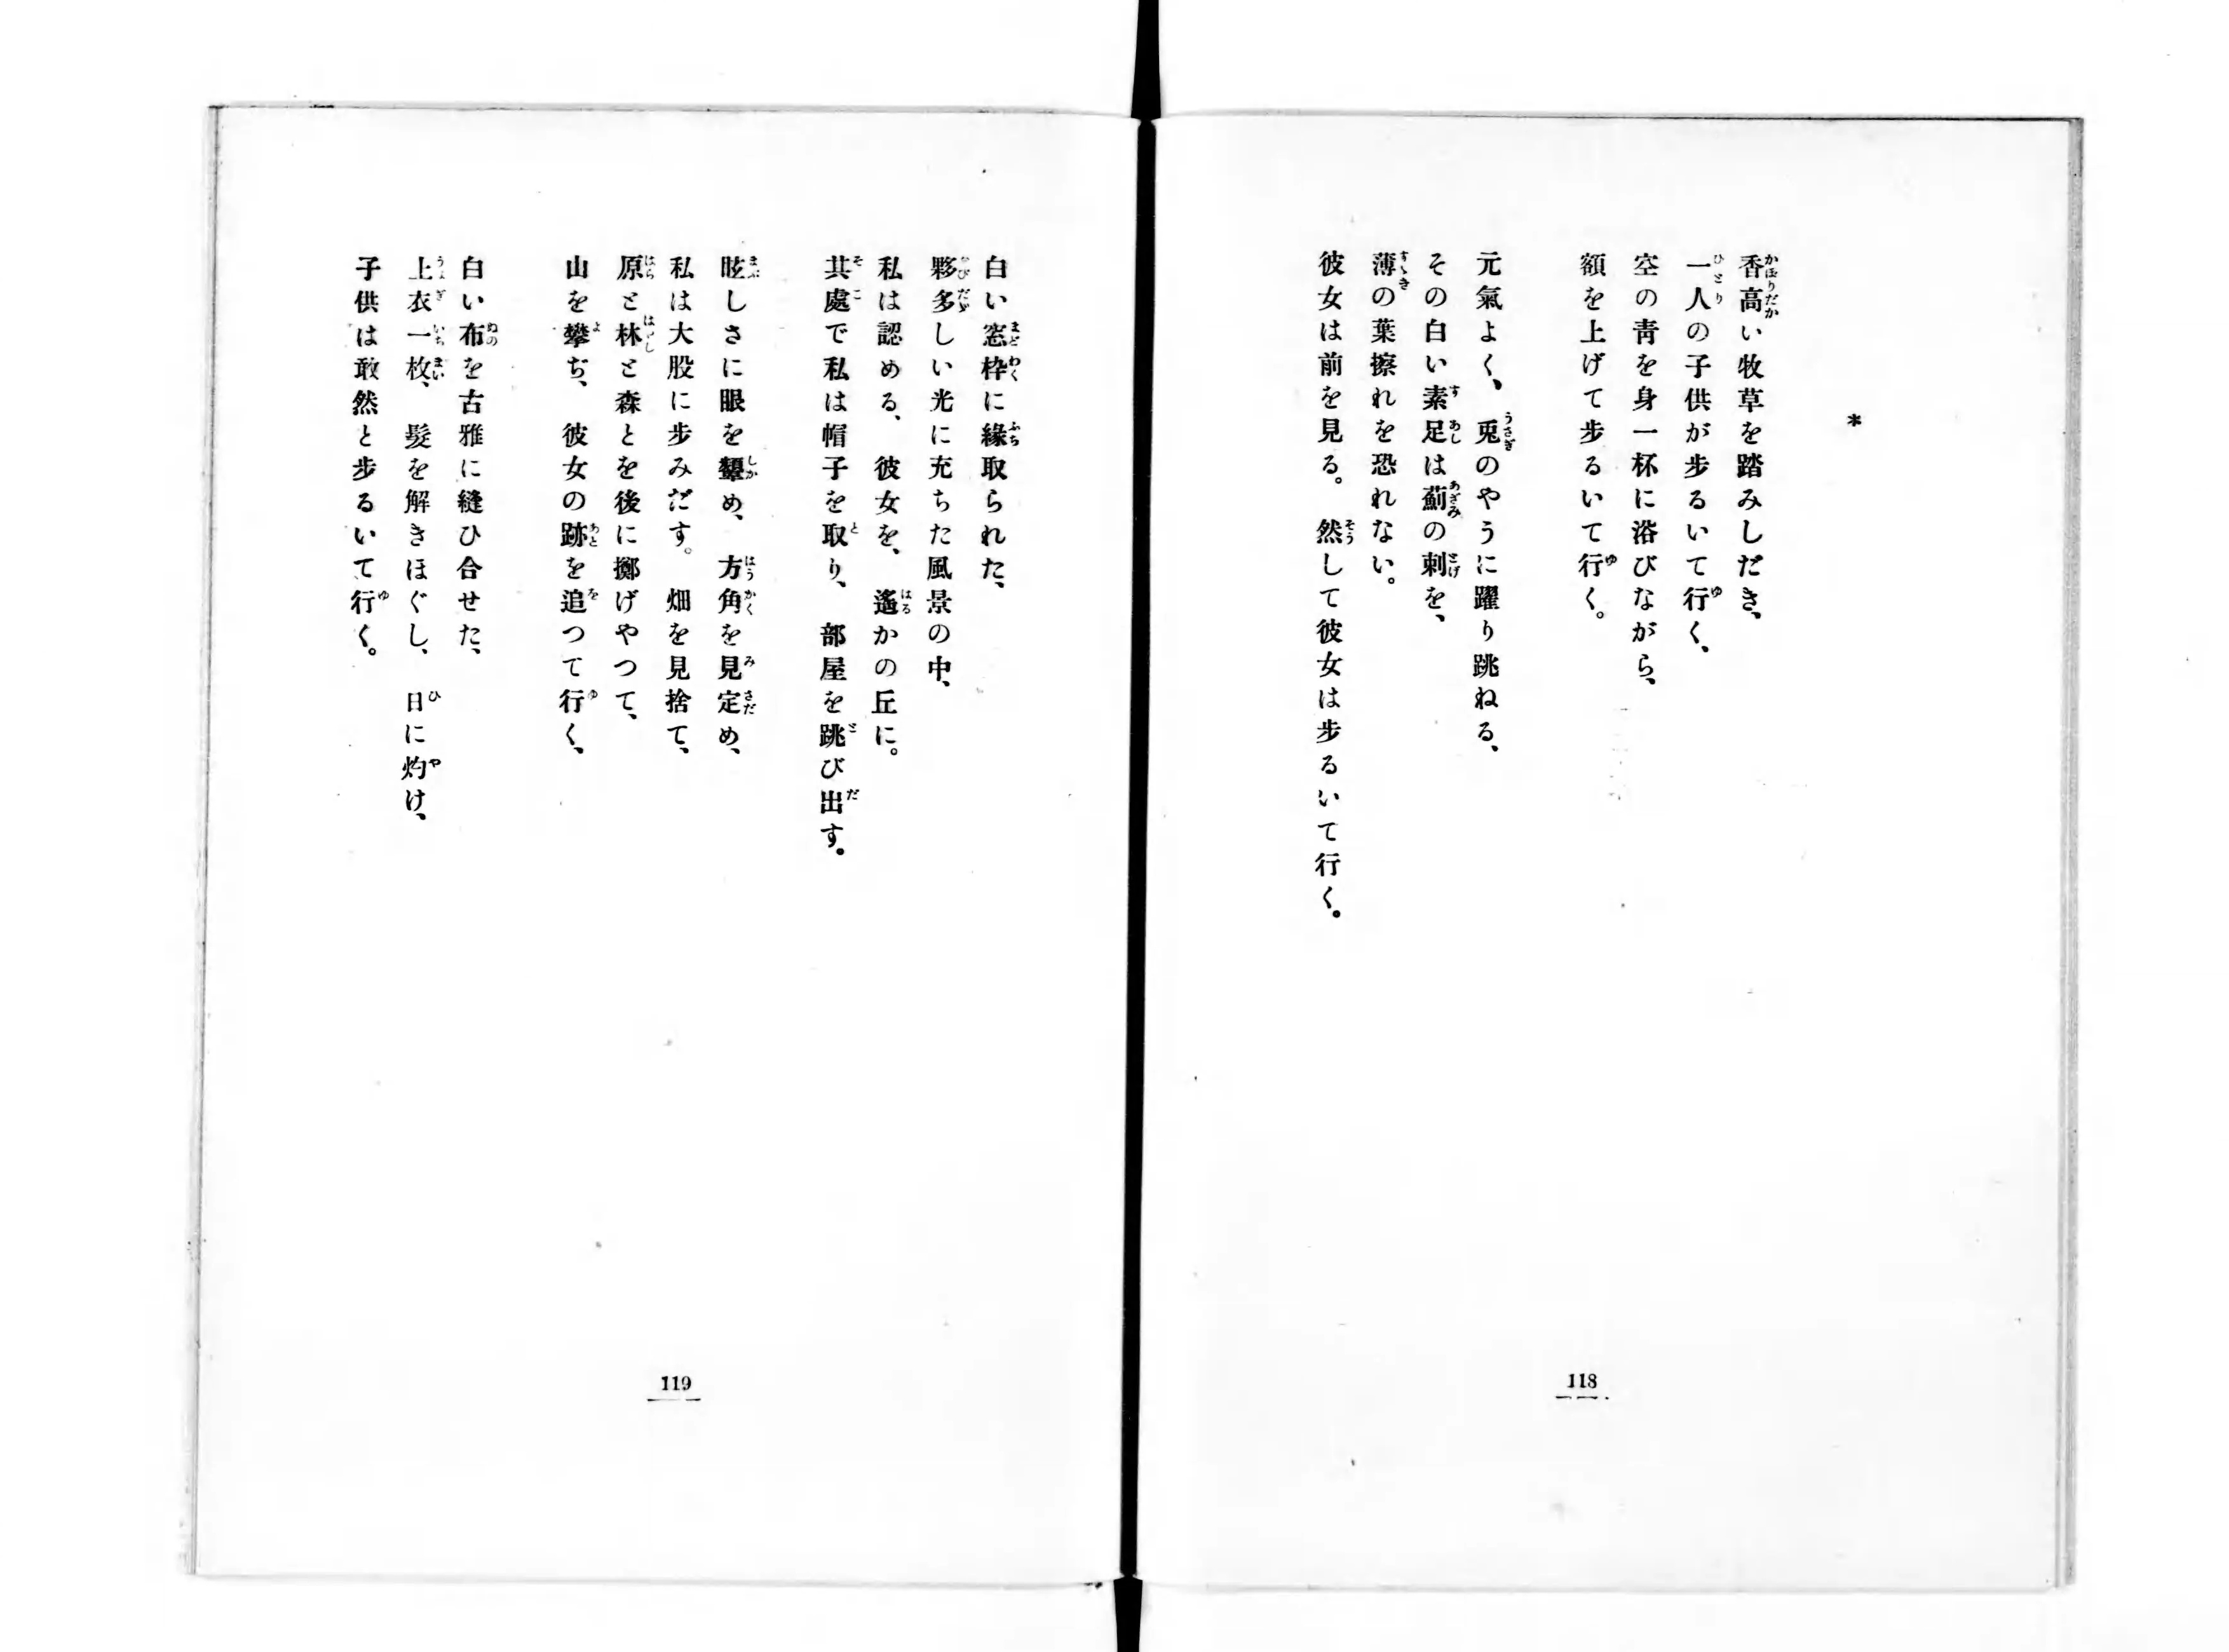 *
香高い牧草を踏みしだき、
一人の子供が歩るいて行く、
空の靑を身一杯に浴びながら、
額を上げて歩るいて行く。
元氣よく、兎のやうに躍り跳ねる、
その白い素足は薊の刺を、
薄の葉擦れを恐れない。
彼女は前を見る。然して彼女は歩るいて行く。
118
白い窓枠に緣取られた、
夥多しい光に充ちた風景の中、
私は認める、彼女を、遙かの丘に。
其處で私は帽子を取り、部屋を跳び出す。
眩しさに眼を顰め、方角を見定め、
私は大股に歩みだす。畑を見捨て、
原と林と森とを後に擲げやつて、
山を攀ぢ、彼女の跡を追つて行く、
白い布を古雅に縫ひ合せた、
上衣一枚、髮を解きほぐし、日に灼け、
子供は敢然と歩るいて行く。
119